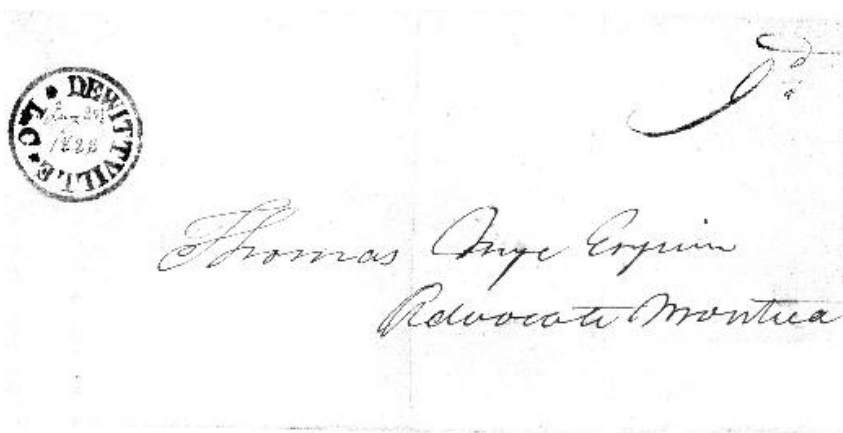 DEWITTVILLE L.C
Thomas Nye Esquire
Advocate Montrea